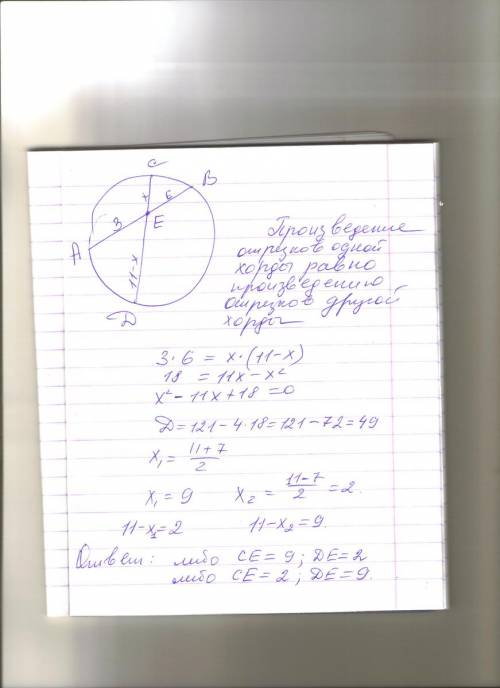 C
B
x
6
3
E
A
11-x
D
Произведение
отрезков одной
хорды равно
произведению
отрезков другой
хорды
3·6 = x·(11-x)
18 = 11x-x²
x²-11x+18=0
D=121-4·18=121-72=49
x₁ = 11+7/2
x₁=9 x₂ = 11-7/2 = 2.
11-x₁=2 11-x₂=9.
Ответ: либо CE=9; DE=2
либо CE=2; DE=9.